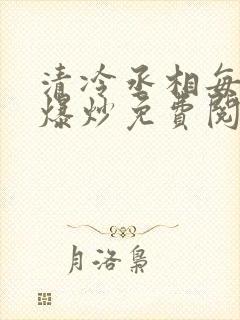 清冷丞相每
爆炒免费阅
月洛枭